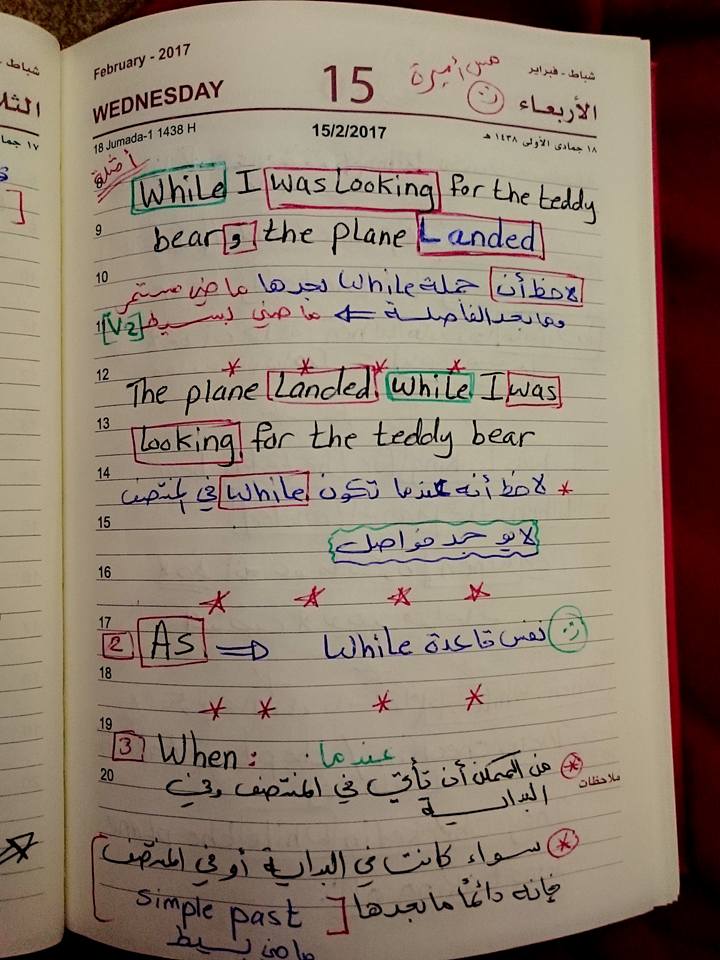 February - 2017
WEDNESDAY
15
مس أميرة
شباط - فبراير
الأربعاء
18 Jumada-1 1438 H
15/2/2017
١٨ جمادى الأولى ١٤٣٨ هـ
أمثلة
While I was Looking for the teddy
9
bear, the plane Landed
10
لاحظ أن جملة While بعدها ماضي مستمر
وما بعد الفاصلة ⇐ ماضي بسيط [V2]
12
The plane Landed while I was
13
Looking for the teddy bear
14
* لاحظ أنه عندما تكون While في المنتصف
15
لا يوجد فواصل
16
17
2 As ⇒ نفس قاعدة While
18
19
3 When : عندما
20
ملاحظات
* من الممكن أن تأتي في المنتصف وفي
البداية
* سواء كانت في البداية أو في المنتصف
فإنه دائماً ما بعدها [simple past
ماضي بسيط